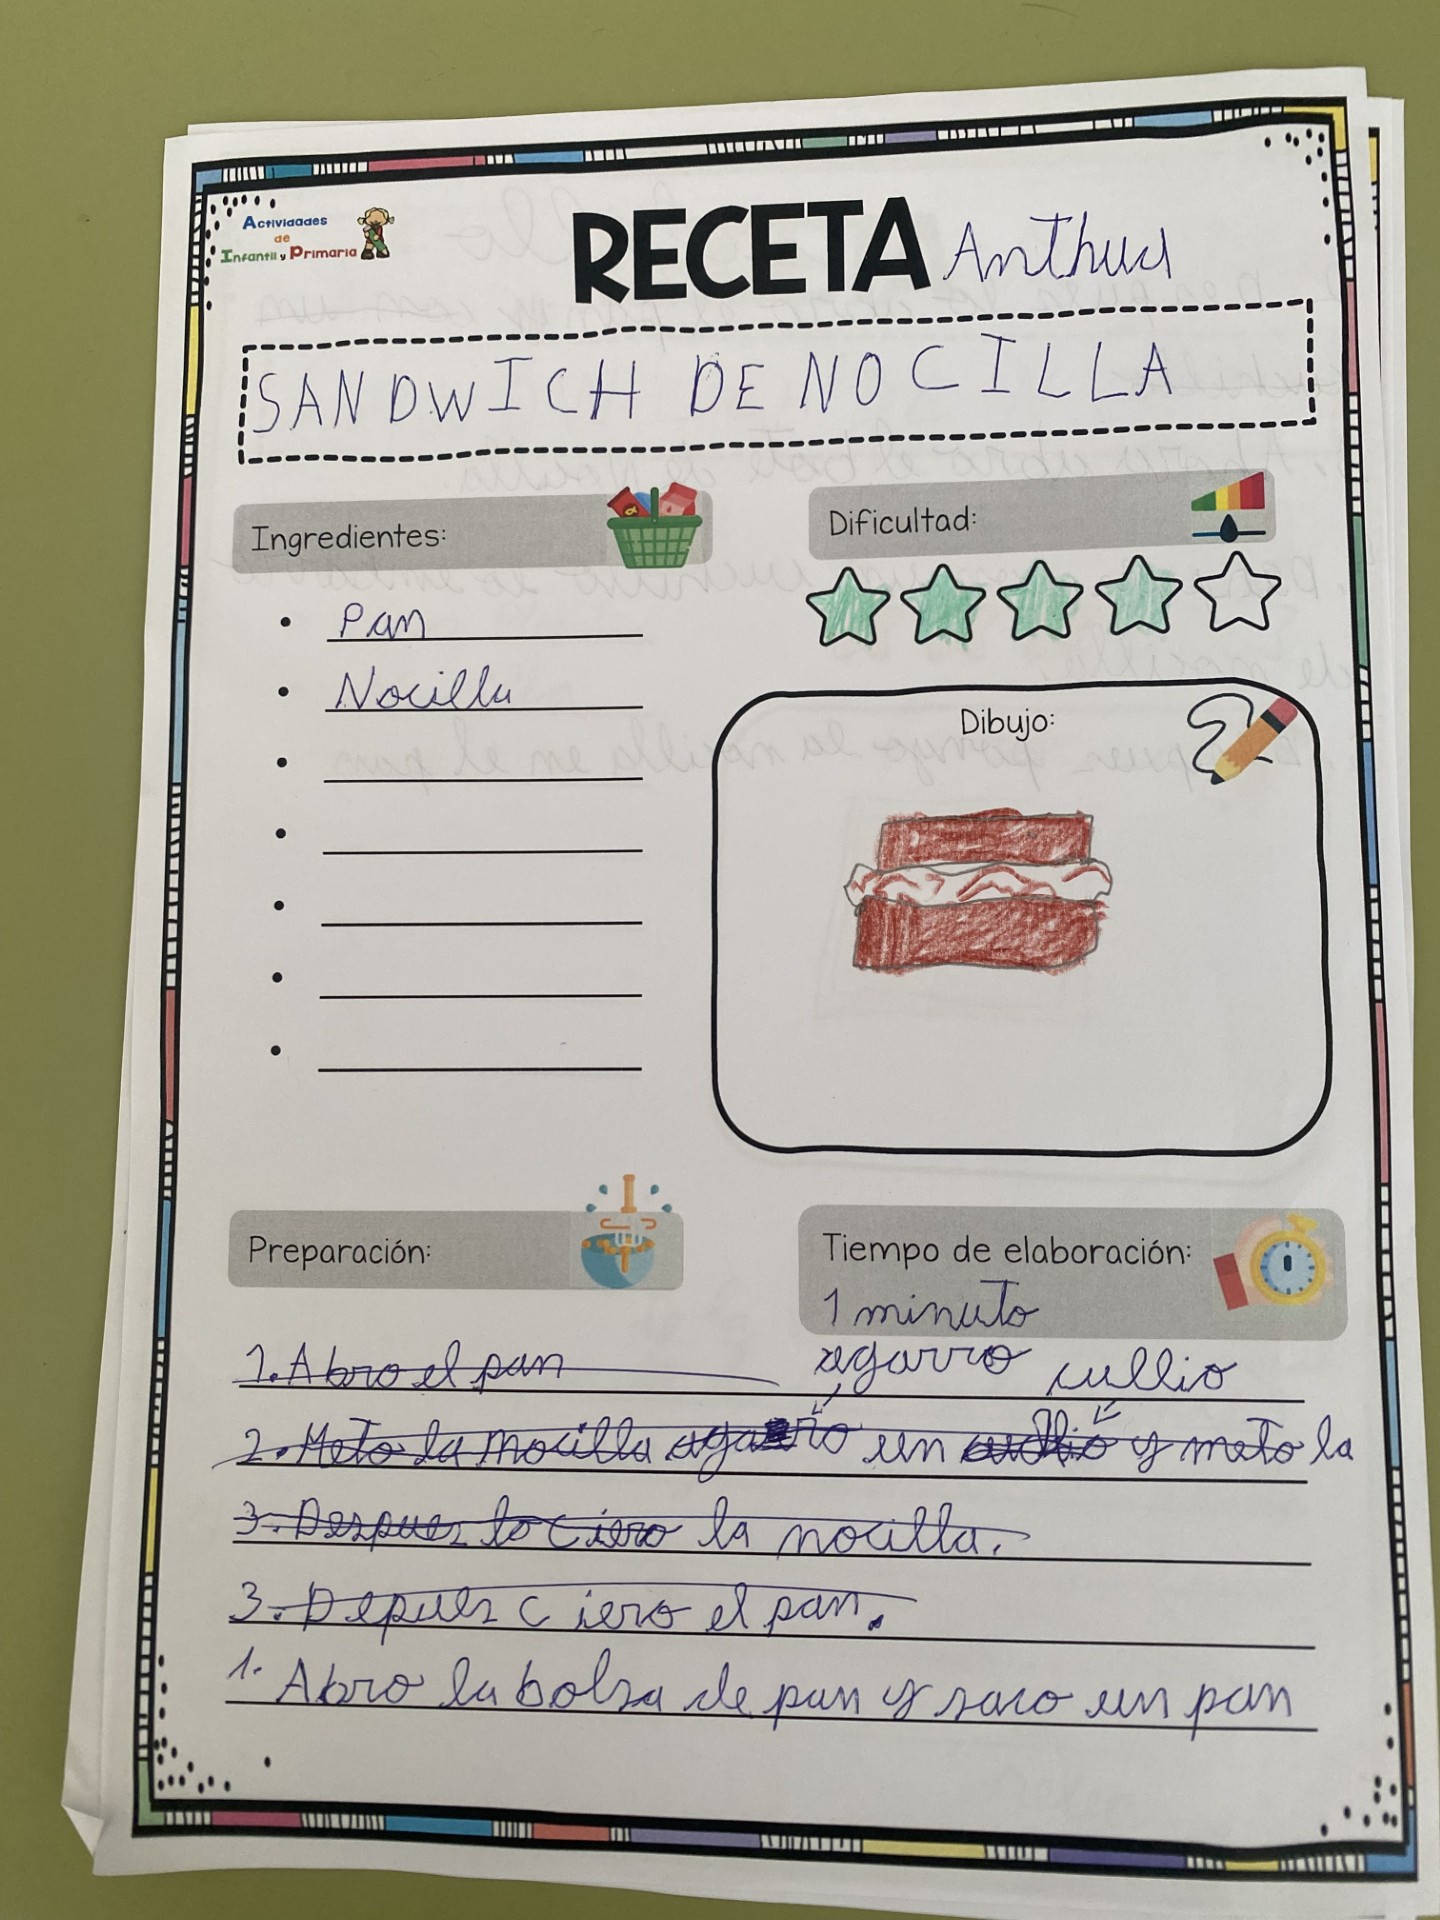 Actividades
de
Infantil y Primaria
RECETA Anthua
SANDWICH DE NOCILLA
Ingredientes:
Pan
Nocilla
Dificultad:
Dibujo:
Preparación:
Tiempo de elaboración:
1 minuto
1. Abro el pan
agarro cullio
2. Meto la nocilla un y meto la
3. Despues lo ciero la nocilla.
3. Depues ciero el pan.
1. Abro la bolsa de pan y saco un pan